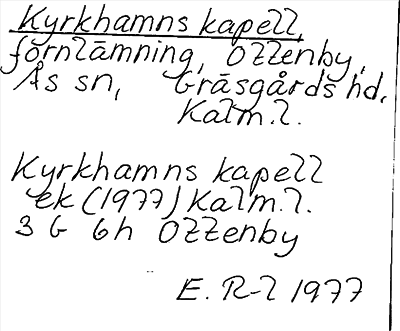 Kyrkhamns kapell,
fornlämning, Ottenby,
Ås sn, Gräsgårds hd,
Kalm. l.
Kyrkhamns kapell
ek (1977) Kalm. l.
3 G 6h Ottenby
E. R-l 1977